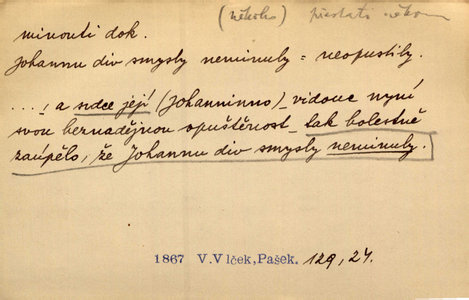 (někoho) přestati někomu
minouti dok.
Johannu div smysly neminuly = neopustily.
..., a srdce její (Johannino) vidouc nyní
svou beznadějnou opuštěnost tak bolestně
zaúpělo, že Johannu div smysly neminuly.
1867 V.Vlček, Pašek. 129, 24.